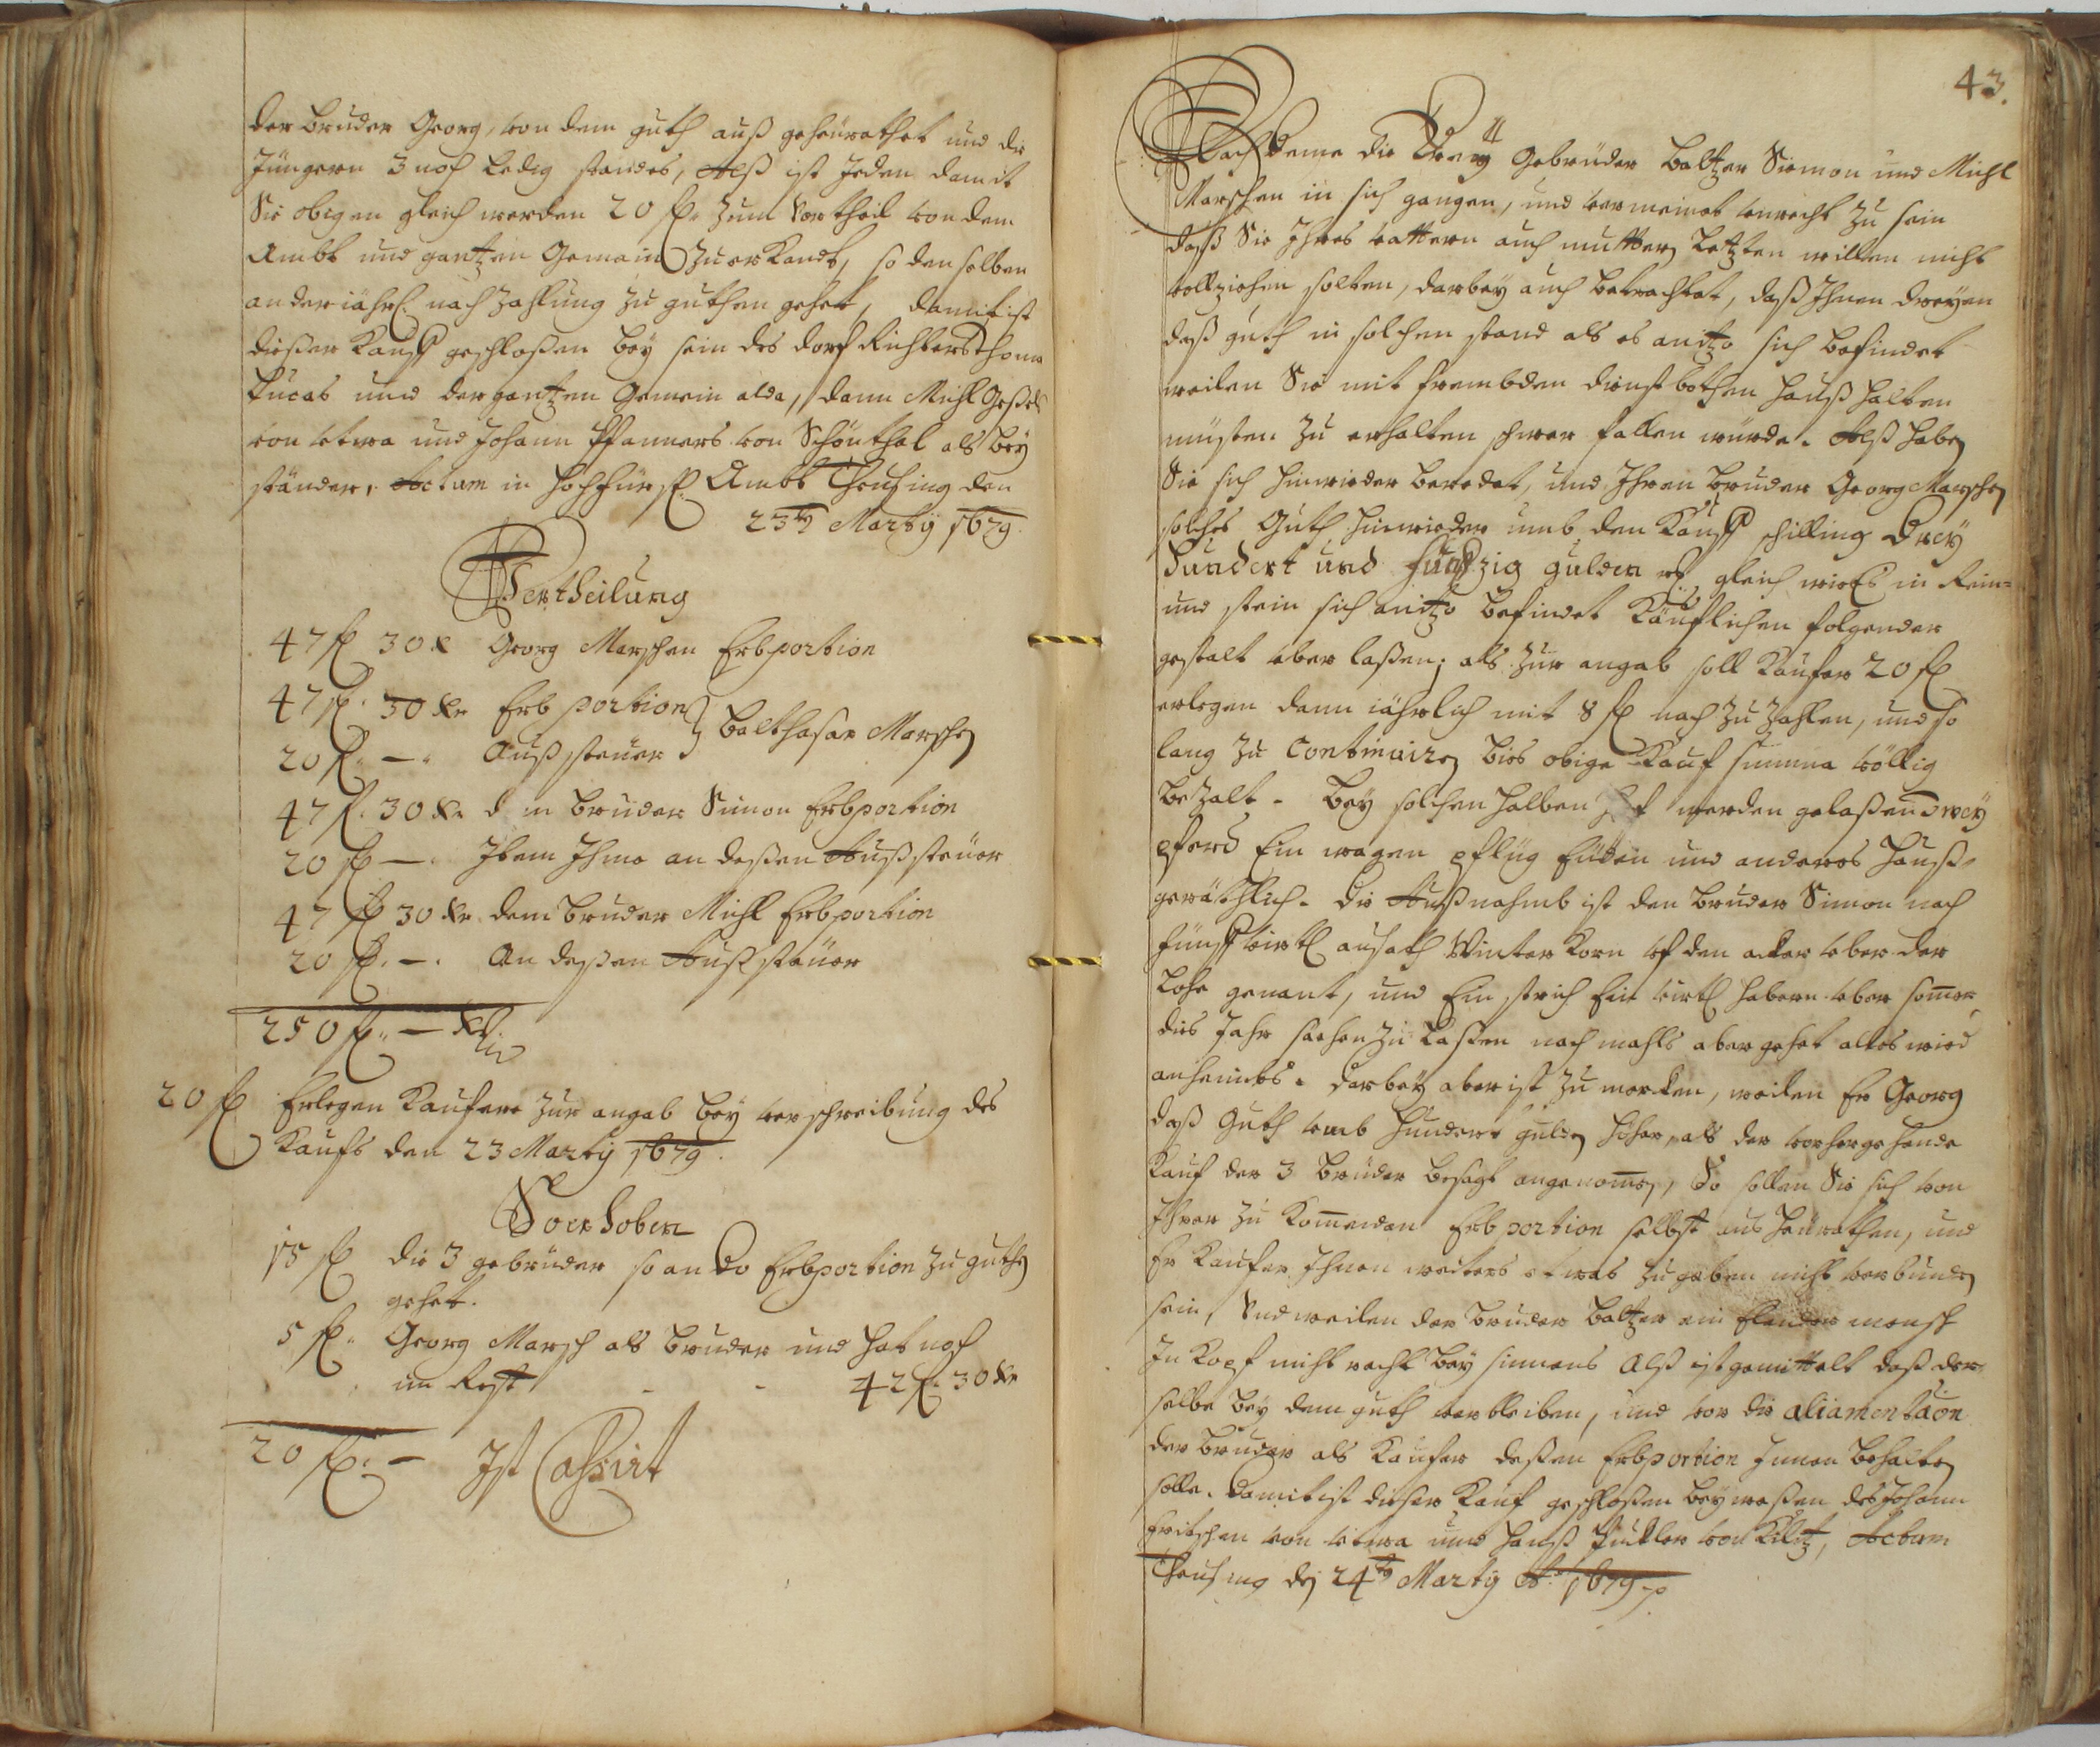 der bruder Georg, von dem guth auß geheürathet und die
Jüngern 3 noch ledig standes, Alß ist Jeden damit
Sie obigen gleich werden 20 fl. zum Vortheil von dem
Ambt und gantzen Gemein zuerkandt, so denselben
an der jährl. nachzahlung zu guthen gehet, damit ist
dießer Kauff geschloßen bey sein des dorf Richters Thoma
Lucas und der gantzen Gemein alda, dann Michl
von und Johann Pfanners von Schönthal als bey
ständer, Actum in hochfürstl. Ambt Theusing den
23ten Marty 1679.
Vertheilung
47 fl 30 x Georg Marschen Erbportion
47 fl. 30 Kr Erb portion
20 fl. — . Außsteuer } Balthasar Marschen
47 fl. 30 Kr dem bruder Simon Erbportion
20 fl — . Item Ihme an deßen Außsteüer
47 fl 30 Kr dem bruder Michl Erbportion
20 fl. — . An deßen Außsteüer
250 fl. — Kr.
20 fl Erlegen Kaufer zur angab bey verschreibung des
Kaufs den 23 Marty 1679.
So erhoben
15 fl die 3 gebrüder so an do Erbportion zu guthen
gehet.
5 fl. Georg Marsch als bruder und hat noch
im Rest - - 42 fl. 30 Kr
20 fl. — Ist Cassirt
43.
Nach deme die Drey Gebrüder Baltzer Siemon und Michl
Marschen in sich gangen, und vermeinet unrecht zu sein
daß Sie Ihres vattern auch mutter letzten willen nicht
vollziehen solten, darbey auch betrachtet, daß Ihnen dreyen
daß guth in solchen stand als es anitzo sich befindet
weilen Sie mit frembden dienstbothen hauß halten
müsten zu erhalten schwer fallen würde. Alß haben
Sie sich hinwieder beredet, und Ihren bruder Georg Marschen
solches Guth hinwieder umb den Kauff schilling Drey
Hundert und funffzig gulden gleich wie Es in Rein-
und stein sich anitzo befindet Käuflichen folgender
gestalt uber laßen; als zur angab soll Kaufer 20 fl
erlegen dann jährlich mit 8 fl nach zu zahlen, und so
lang zu Continuiren bies obige Kauf summa völlig
bezalt. Bey solchen halben hof werden gelaßen drey
pferd Ein wagen pflug Eüden und anderes hauß-
geräthlich. Die Außnahmb ist den bruder Simon noch
fünff virtl ansath Winter Korn uf den acker uber der
Lohe genant, und Ein strich Ein virtl habern uber sommer
dies Jahr säehen zu laßen nachmahls aber gehet alles wied
anheimbs. darbey aber ist zu mercken, weilen Er Georg
daß Guth umb hundert gulden höher, als der vorhergehende
Kauf der 3 brüder besagt angenommen, So sollen Sie sich von
Ihrer zu Kommenden Erbportion selbst aus heürathen, und
Er Kaufer Ihnen weiters etwas zugeben nicht verbunden
sein, Und weilen der bruder Baltzer ein Elender mensch
Im Kopf nicht recht bey sinnens Alß ist gemittelt daß der-
selbe bey dem guth verbleiben, und vor die aliamentaon
der bruder als Kaufer deßen Erbportion Innen behalten
solle. Damit ist dießer Kauf geschloßen beyweßen des Johann
Fritschen von und Hanß von Kilitz, Actum
Theusing den 24ten Marty Ao. 1679.